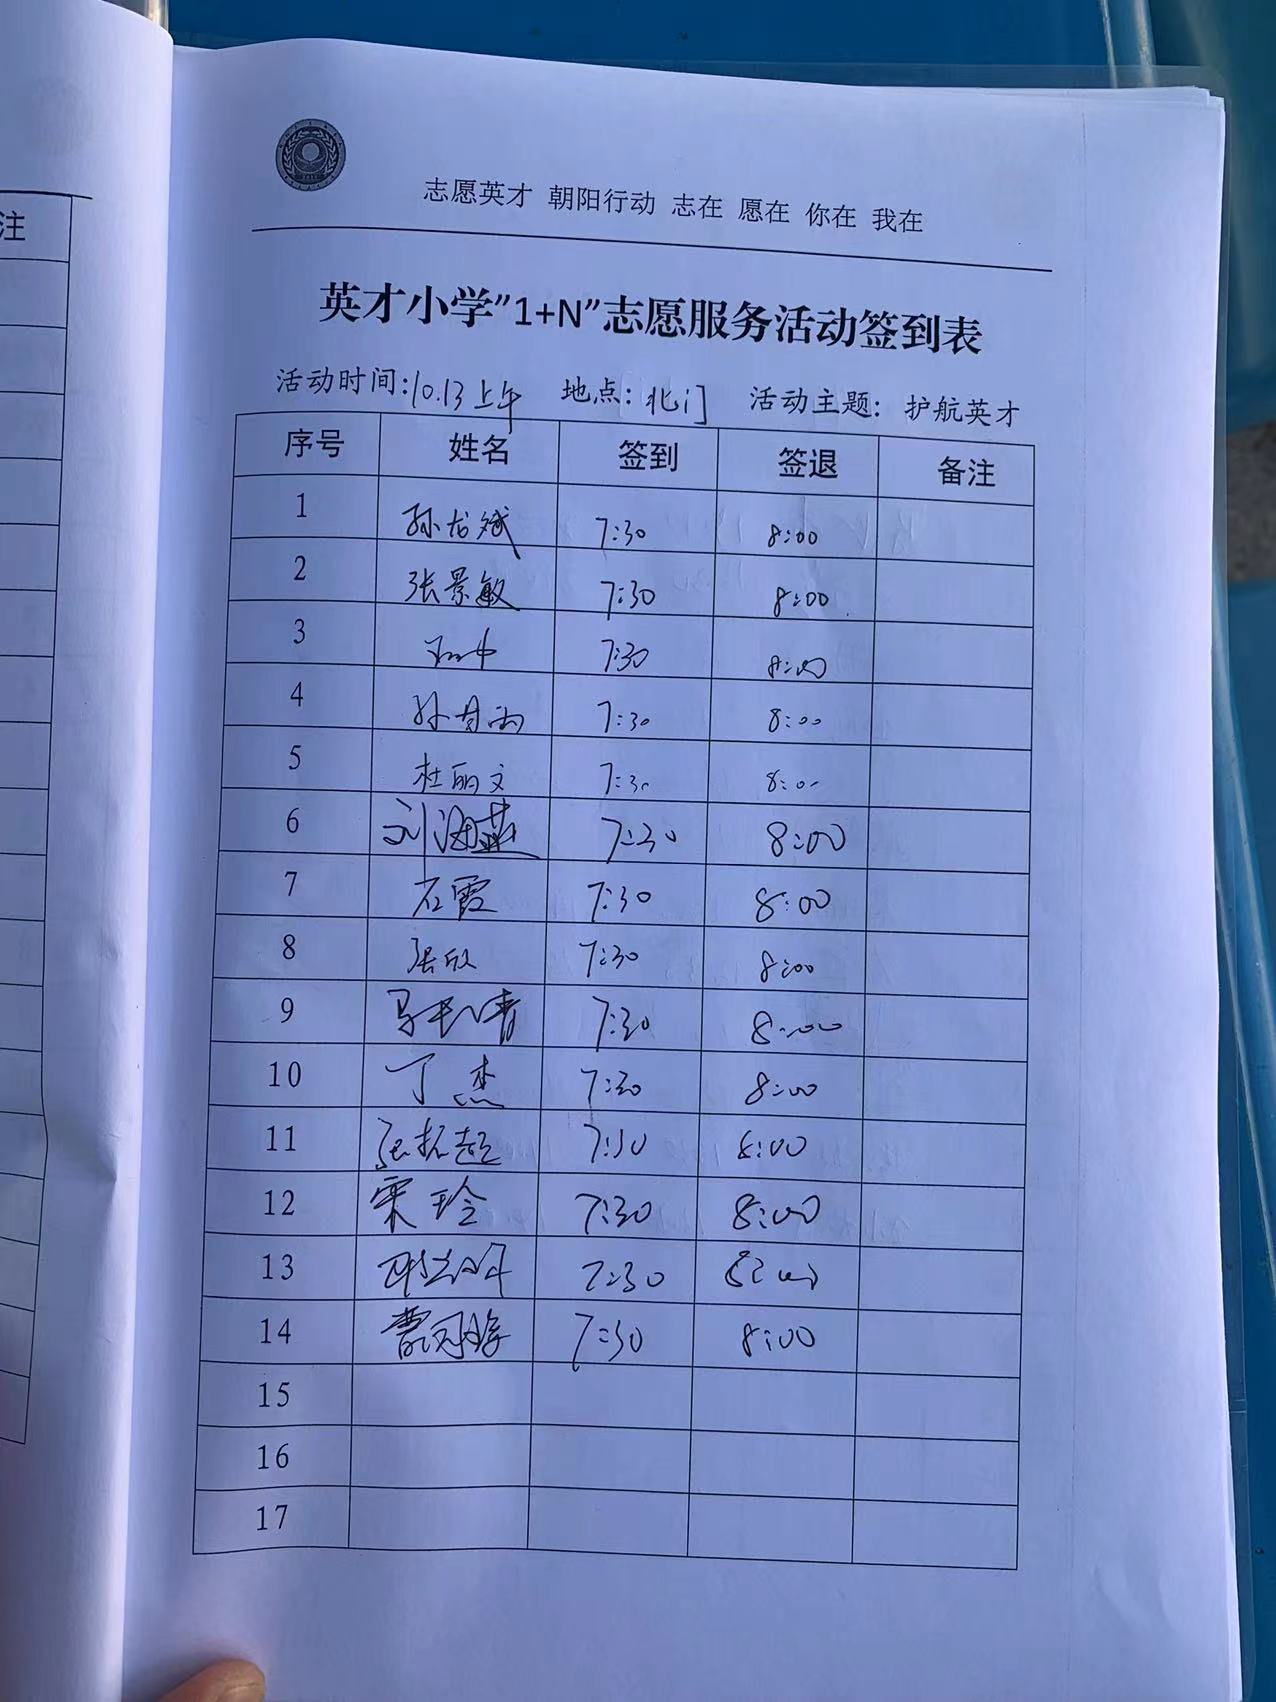 注
志愿英才 朝阳行动 志在 愿在 你在 我在
英才小学"1+N"志愿服务活动签到表
活动时间:10.13上午 地点:北门 活动主题: 护航英才
序号 姓名 签到 签退 备注
1 孙龙斌 7:30 8:00
2 张景敏 7:30 8:00
3 7:30 8:00
4 孙 雨 7:30 8:00
5 杜丽文 7:30 8:00
6 刘海燕 7:30 8:00
7 石霞 7:30 8:00
8 张欣 7:30 8:00
9 7:30 8:00
10 丁杰 7:30 8:00
11 张振超 7:30 8:00
12 宋玲 7:30 8:00
13 7:30 8:00
14 曹 7:30 8:00
15
16
17